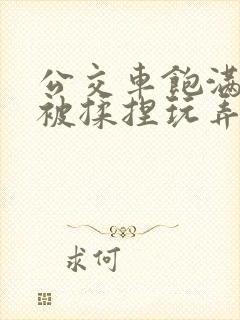 公交車飽滿
被揉捏玩弄
求何